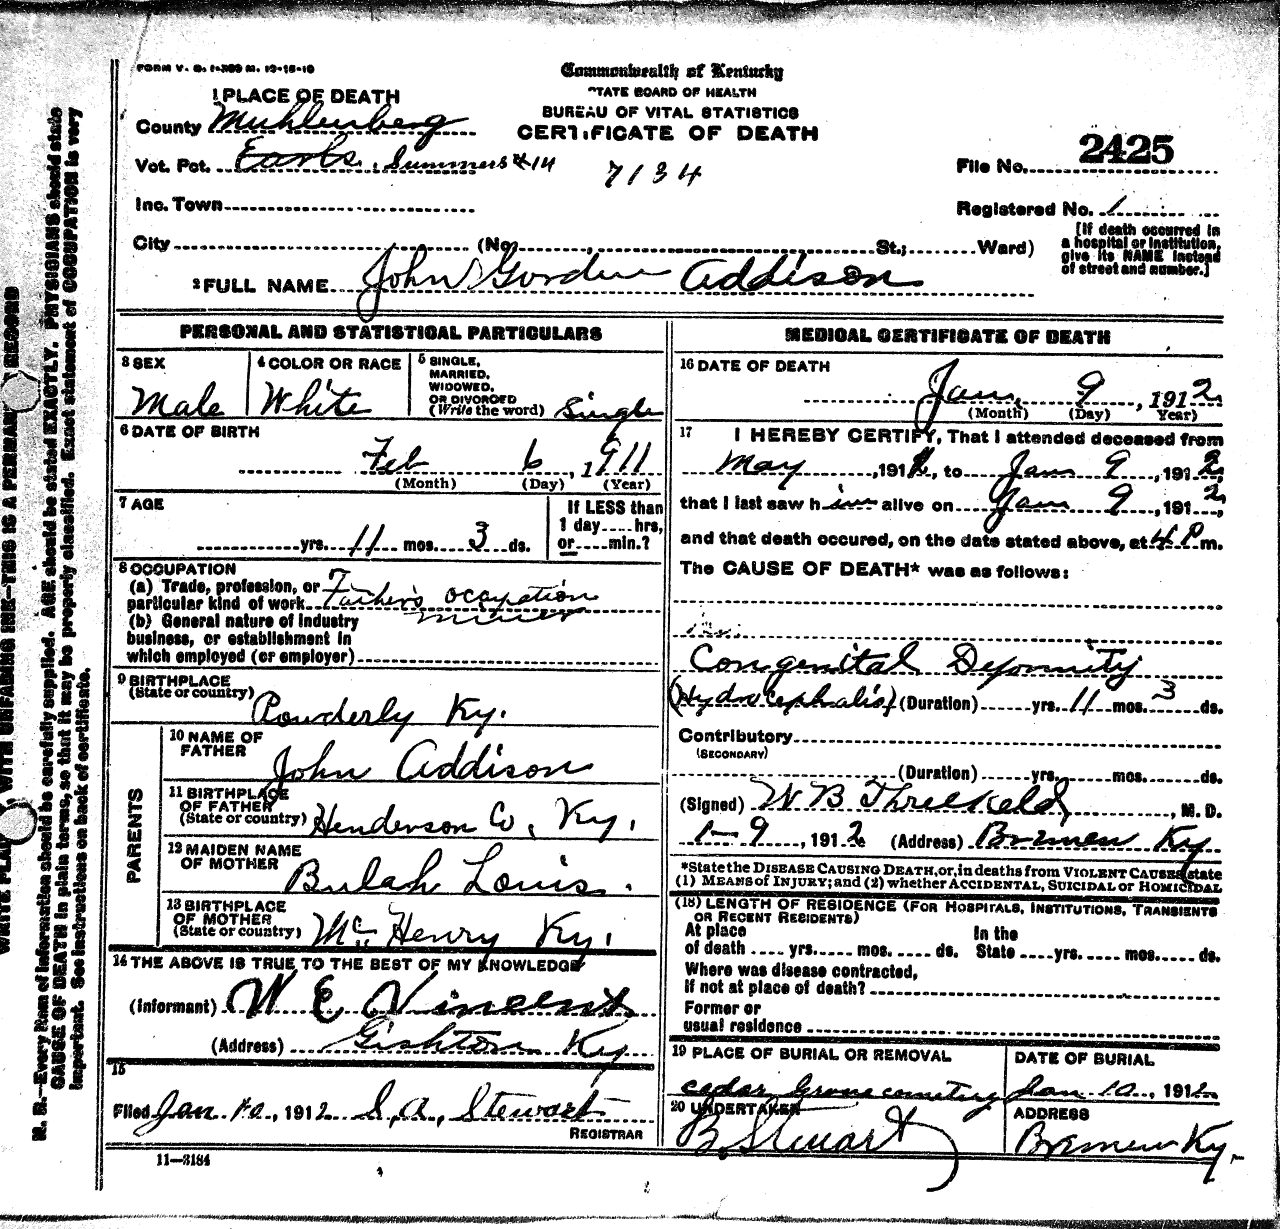 FORM V. S. 1-300 M. 12-15-10
Commonwealth of Kentucky
STATE BOARD OF HEALTH
BUREAU OF VITAL STATISTICS
CERTIFICATE OF DEATH
1 PLACE OF DEATH
County Muhlenberg
Vot. Pct. Earls, Summers #14
7134
File No. 2425
Inc. Town
Registered No. 1
City (No. St.; Ward)
[If death occurred in
a hospital or institution,
give its NAME instead
of street and number.]
2 FULL NAME John Gordon Addison
PERSONAL AND STATISTICAL PARTICULARS
3 SEX
Male
4 COLOR OR RACE
White
5 SINGLE,
MARRIED,
WIDOWED,
OR DIVORCED
(Write the word) Single
6 DATE OF BIRTH
Feb 6, 1911
(Month) (Day) (Year)
7 AGE
yrs. 11 mos. 3 ds.
If LESS than
1 day hrs,
or min.?
8 OCCUPATION
(a) Trade, profession, or
particular kind of work Father's ocupation
miner
(b) General nature of industry
business, or establishment in
which employed (or employer)
9 BIRTHPLACE
(State or country)
Powderly Ky.
PARENTS
10 NAME OF
FATHER
John Addison
11 BIRTHPLACE
OF FATHER
(State or country) Henderson Co, Ky.
12 MAIDEN NAME
OF MOTHER
Bulah Louis.
13 BIRTHPLACE
OF MOTHER
(State or country) McHenry Ky.
14 THE ABOVE IS TRUE TO THE BEST OF MY KNOWLEDGE
(Informant) W E Vincent
(Address) Gishton Ky
15
Filed Jan 10, 1912 S, A, Stewart
REGISTRAR
11—3184
MEDICAL CERTIFICATE OF DEATH
16 DATE OF DEATH
Jan, 9, 1912
(Month) (Day) Year)
17 I HEREBY CERTIFY, That I attended deceased from
May, 191 , to Jan 9, 1912,
that I last saw him alive on Jan 9, 1912,
and that death occured, on the date stated above, at 4 P m.
The CAUSE OF DEATH* was as follows:
Congenital Deformity
(Hydrocephalis) (Duration) yrs. 11 mos. 3 ds.
Contributory
(SECONDARY)
(Duration) yrs. mos. ds.
(Signed) W B Threlkeld, M. D.
1-9, 1912 (Address) Bremen Ky
*State the DISEASE CAUSING DEATH, or, in deaths from VIOLENT CAUSES, state
(1) MEANS OF INJURY; and (2) whether ACCIDENTAL, SUICIDAL or HOMICIDAL
(18) LENGTH OF RESIDENCE (FOR HOSPITALS, INSTITUTIONS, TRANSIENTS
OR RECENT RESIDENTS)
At place
of death yrs. mos. ds.
In the
State yrs. mos. ds.
Where was disease contracted,
if not at place of death?
Former or
usual residence
19 PLACE OF BURIAL OR REMOVAL
cedar Grove cemetry
DATE OF BURIAL
Jan 10, 1912
20 UNDERTAKER
B. Stewart
ADDRESS
Bremen Ky.
N. B.—Every item of information should be carefully supplied. AGE should be stated EXACTLY. PHYSICIANS should state
CAUSE OF DEATH in plain terms, so that it may be properly classified. Exact statement of OCCUPATION is very
important. See instructions on back of certificate.
WITH UNFADING INK—THIS IS A RECORD